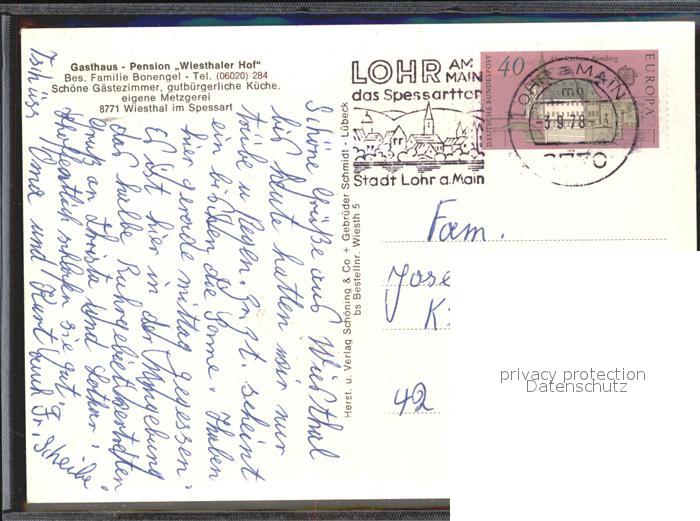 Gasthaus - Pension „Wiesthaler Hof"
Bes. Familie Bonengel - Tel. (06020) 284
Schöne Gästezimmer, gutbürgerliche Küche.
eigene Metzgerei
8771 Wiesthal im Spessart
Schöne Grüße aus Wiesthal
bis heute hatten wir nur
trübe u Regen. Zr. Zt. scheint
ein bißchen die Sonne. Haben
hier gerade mittag gegessen.
Es ist hier in der Umgebung
das halbe Ruhrgebiet vertreten
Gruß an Christa und Lothar.
Hoffentlich schlafen sie gut.
Tschüss Oma und Kurt auch Fr. Scheibe.
Herst. u. Verlag Schöning & Co + Gebrüder Schmidt - Lübeck
bs Bestellnr. Wiesth 5
LOHR AM MAIN
das Spessarttor
Stadt Lohr a.Main
40
DEUTSCHE BUNDESPOST
Bamberg
EUROPA
LOHR a MAIN
mn
-3.8.78
8770
Fam.
Jose
K
42
privacy protection
Datenschutz